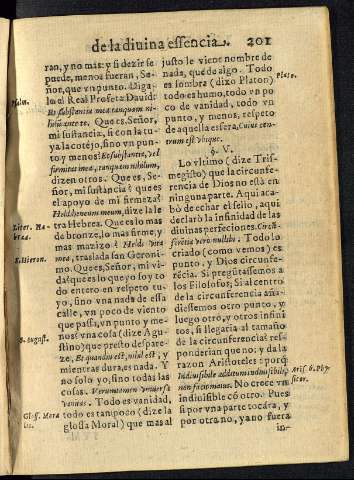 de la diuina essencia. 201
ran, y no mas: y si dezir se
puede, menos fueran, Se-
ñor, que vn punto. Diga-
lo el Real Profeta Dauid:
Psalm.
Et substantia mea tanquam ni-
hilum ante te. Que es, Señor,
mi sustancia, si con la tu-
ya la cotejo, sino vn pun-
to y menos? Et substantia, vel
firmitas mea, tanquam nihilum,
dizen otros. Que es, Se-
ñor, mi sustancia? que es
el apoyo de mi firmeza?
meum, dize la le-
tra Hebrea. Que es lo mas
de bronze, lo mas firme, y
mas mazizo?
S. Hieron.
mea, traslada san Geroni-
mo. Que es, Señor, mi vi-
da? que es lo que yo soy to
do entero en respeto tu-
yo, sino vna nada de essa
calle, vn poco de viento
que passa, vn punto y me-
nos: vna cosa (dize Agu-
S. August.
stino) que presto despare-
ze, Et quando est, nihil est; y
mientras dura, es nada. Y
no solo yo, sino todas las
cosas. Veruntamen vniuersa
vanitas. Todo es vanidad,
todo es tanpoco (dize la
glossa Moral) que mas al
justo le viene nombre de
nada, que de algo. Todo
es sombra (dixo Platon)
Plato.
todo es humo, todo vn po
co de vanidad, todo vn
punto, y menos, respeto
de aquella esfera, Cuius cen-
trum est vbique.
§. V.
Lo vltimo (dize Tris-
megisto) que la circunfe-
rencia de Dios no está en
ninguna parte. Aqui aca-
bó de echar el sello, aqui
declaró la infinidad de las
diuinas perfeciones. Circũ-
ferẽtia vero nullibi. Todo lo
criado (como vemos) es
punto, y Dios circunfe-
rẽcia. Si pregũtassemos a
los Filosofos; Si al centro
de la circunferencia aña-
diessemos otro punto, y
luego otro, y otros infini
tos, si llegaria al tamaño
de la circunferencia? res-
ponderian que no; y da la
razon Aristoteles: porq̃
Indiuisibile additum indiuisibili
Aris. 6. Phy
sicor.
non facit maius. No crece vn
indiuisible cõ otro. Pues
si por vna parte tocára, y
por otra no, ya no fuera
in-